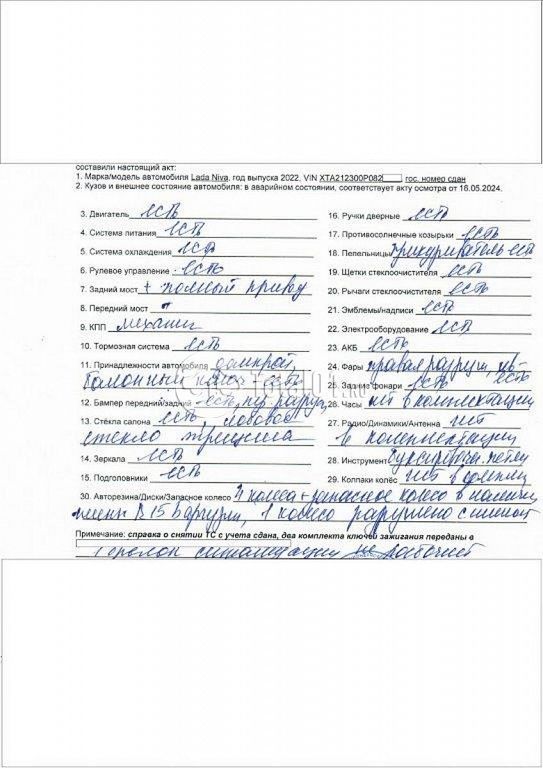 составили настоящий акт:
1. Марка/модель автомобиля Lada Niva, год выпуска 2022, VIN XTA212300P082 гос. номер сдан
2. Кузов и внешнее состояние автомобиля: в аварийном состоянии, соответствует акту осмотра от 18.05.2024.
3. Двигатель есть
4. Система питания есть
5. Система охлаждения есть
6. Рулевое управление есть
7. Задний мост + полный привод
8. Передний мост
9. КПП механич
10. Тормозная система есть
11. Принадлежности автомобиля домкрат,
баллонный ключ есть
12. Бампер передний/задний есть, пер разруш
13. Стёкла салона есть, лобовое
стекло трещина
14. Зеркала есть
15. Подголовники есть
16. Ручки дверные есть
17. Противосолнечные козырьки есть
18. Пепельницы прикуриватель есть
19. Щетки стеклоочистителя есть
20. Рычаги стеклоочистителя есть
21. Эмблемы/надписи есть
22. Электрооборудование есть
23. АКБ есть
24. Фары правая разруш, есть
25. Задние фонари есть
26. Часы нет в комплектации
27. Радио/Динамики/Антенна нет
в комплектации
28. Инструмент буксировочн. петли
29. Колпаки колёс нет
30. Авторезина/Диски/Запасное колесо 4 колеса + запасное колесо в наличии
R15 1 колесо разрушено с шиной
Примечание: справка о снятии ТС с учета сдана, два комплекта ключей зажигания переданы в
1 брелок сигнализации не рабочий